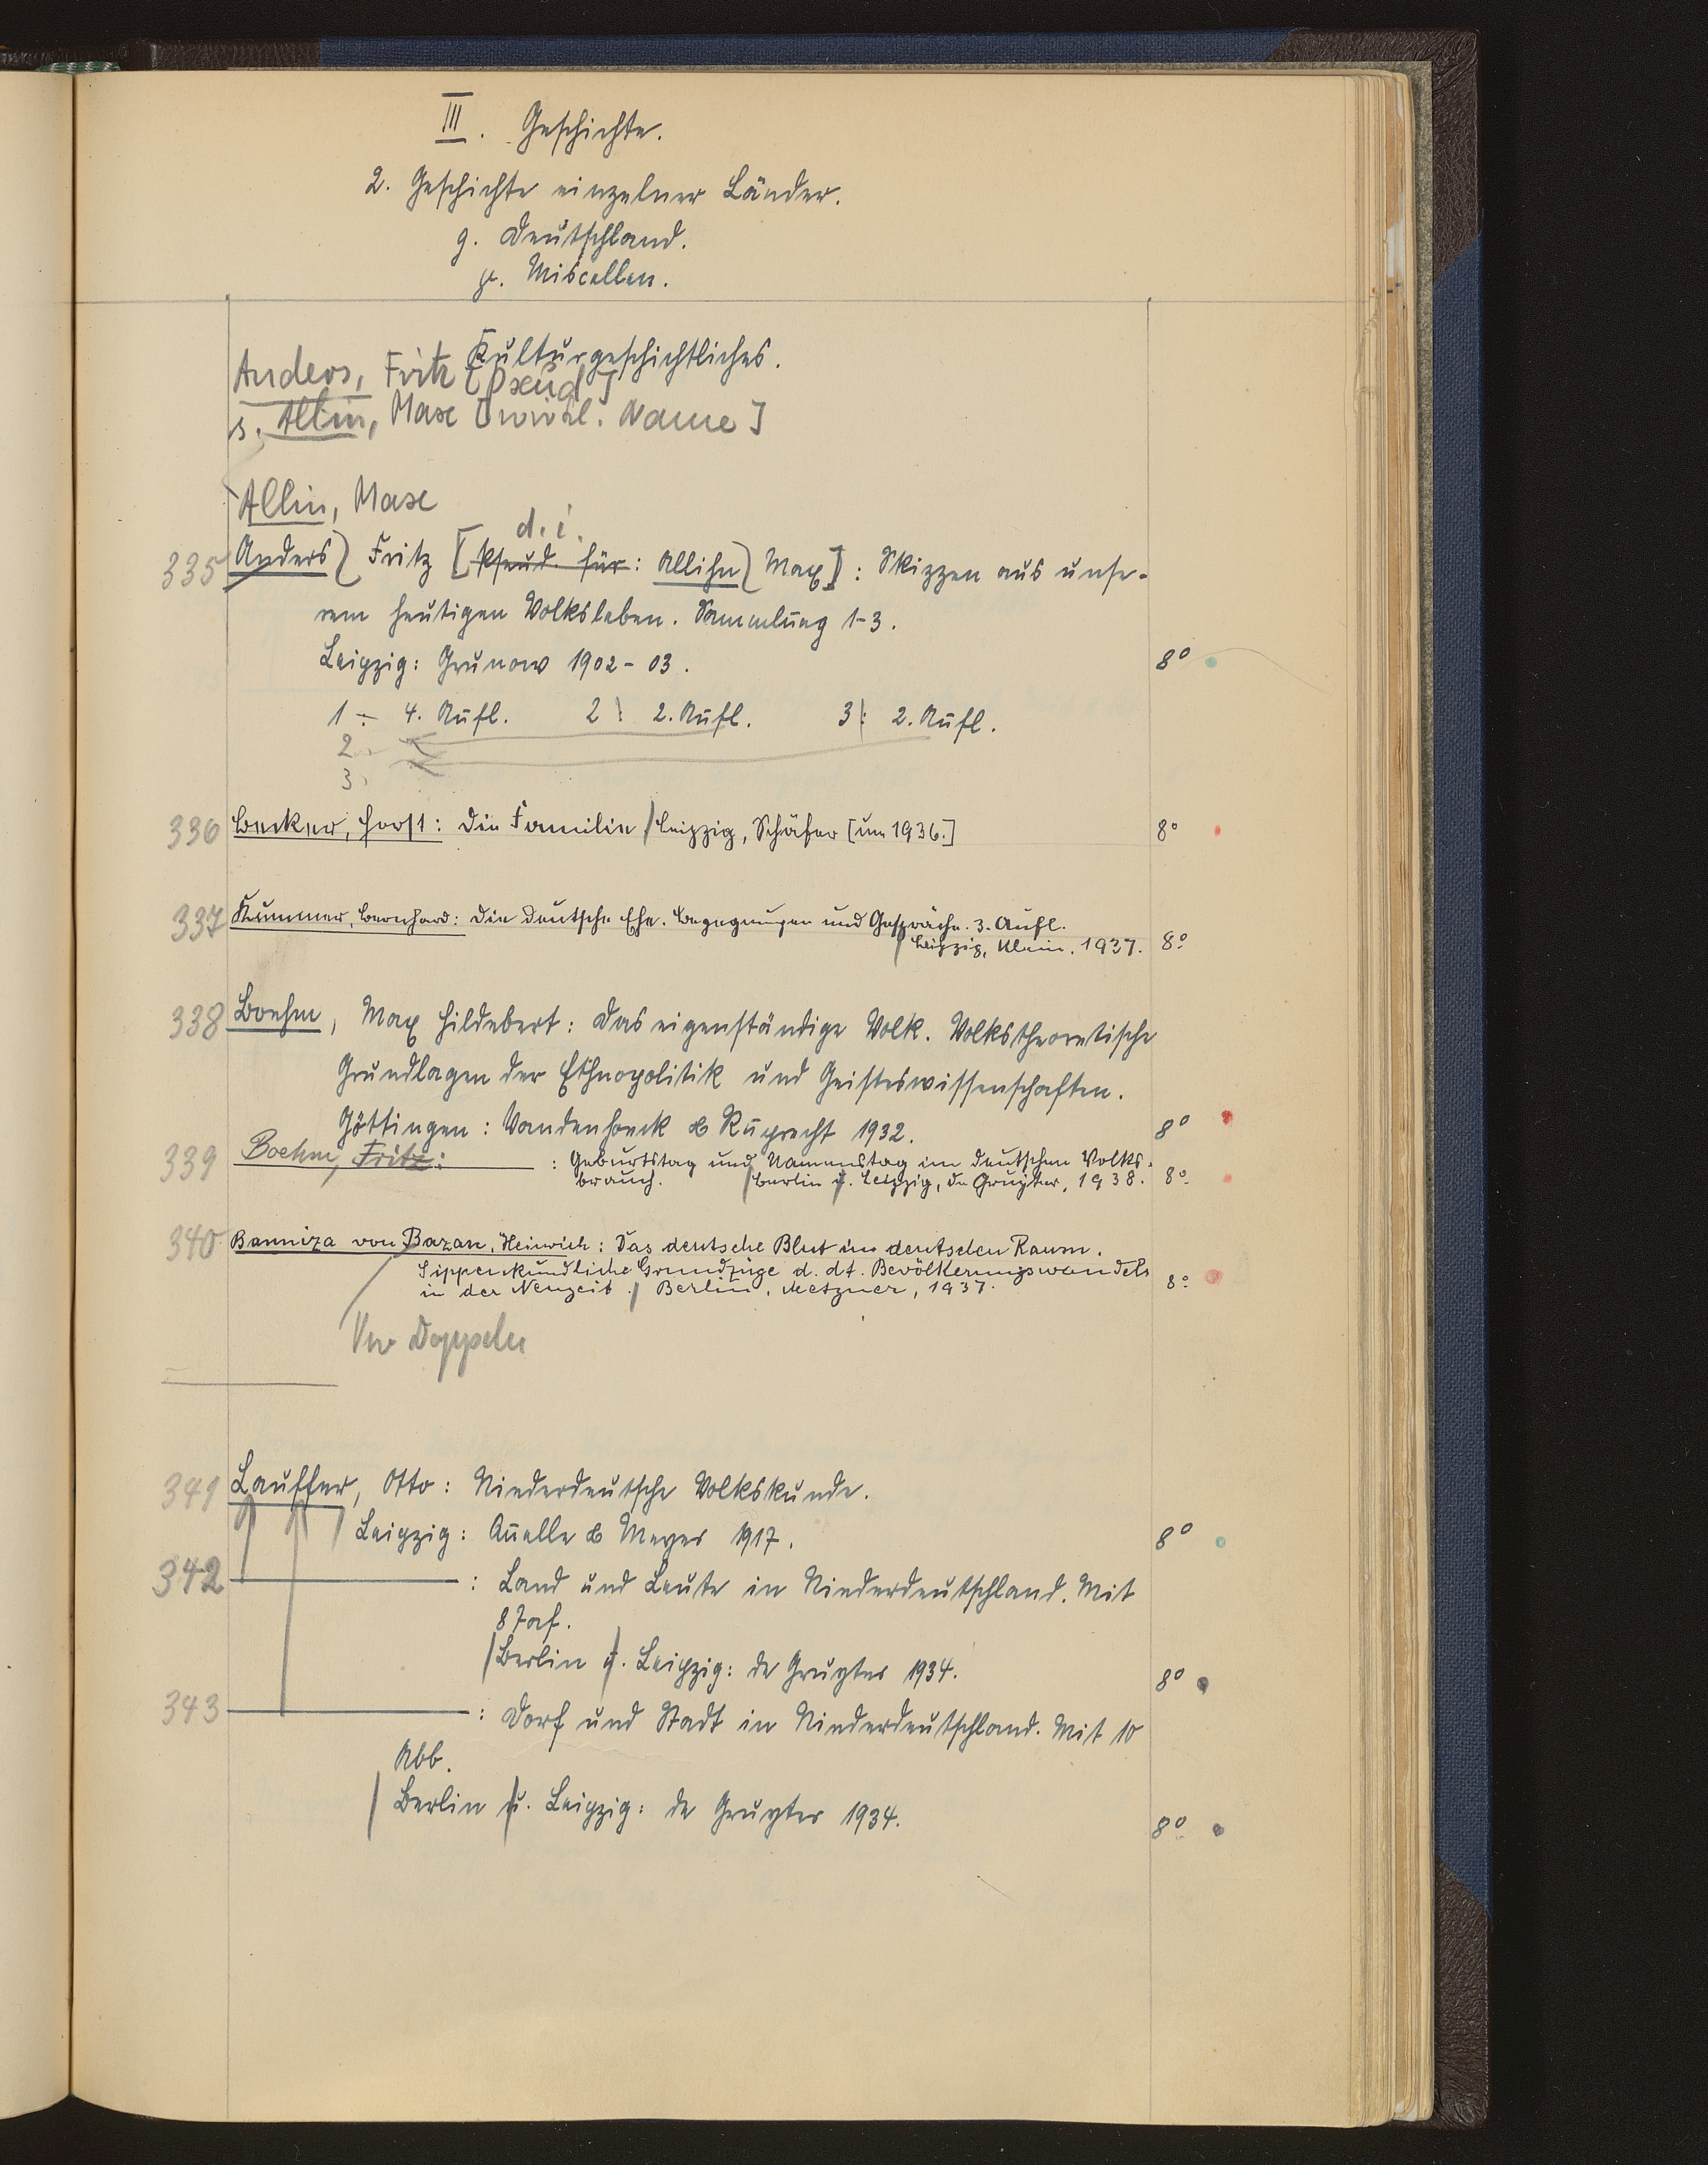 III. Geschichte.
2. Geschichte einzelner Länder.
g. Deutschland.
γ. Miscellen.
Kulturgeschichtliches.
Anders, Fritz [Pseud]
s. Allin, Max [wirkl. Name]
Allin, Max
d. i.
335 Anders, Fritz [Pseud. für: Allihn, Max]: Skizzen aus unse-
rem heutigen Volksleben. Sammlung 1-3.
Leipzig: Grunow 1902-03. 8°
1: 4. Aufl. 2: 2. Aufl. 3: 2. Aufl.
2.
3.
336 Becker, Horst: Die Familie / Leipzig, Schäfer [um 1936.] 8°
337 Kummer, Bernhard: Die deutsche Ehe. Begegnungen und Gespräche. 3. Aufl.
/ Leipzig, Klein, 1937. 8°
338 Boehm, Max Hildebert: Das eigenständige Volk. Volkstheoretische
Grundlagen der Ethnopolitik und Geisteswissenschaften.
Göttingen: Vandenhoeck & Ruprecht 1932. 8°
339 Boehm, Fritz: : Geburtstag und Namenstag im deutschen Volks-
brauch. / Berlin u. Leipzig, de Gruyter, 1938. 8°
340 Banniza von Bazan, Heinrich: Das deutsche Blut im deutschen Raum.
Sippenkundliche Grundzüge d. dt. Bevölkerungswandels
in der Neuzeit. / Berlin, Metzner, 1937. 8°
Doppeln
341 Lauffer, Otto: Niederdeutsche Volkskunde.
Leipzig: Quelle & Meyer 1917. 8°
342 : Land und Leute in Niederdeutschland. Mit
8 Taf.
/ Berlin u. Leipzig: de Gruyter 1934. 8°
343 : Dorf und Stadt in Niederdeutschland. Mit 10
Abb.
/ Berlin u. Leipzig: de Gruyter 1934. 8°